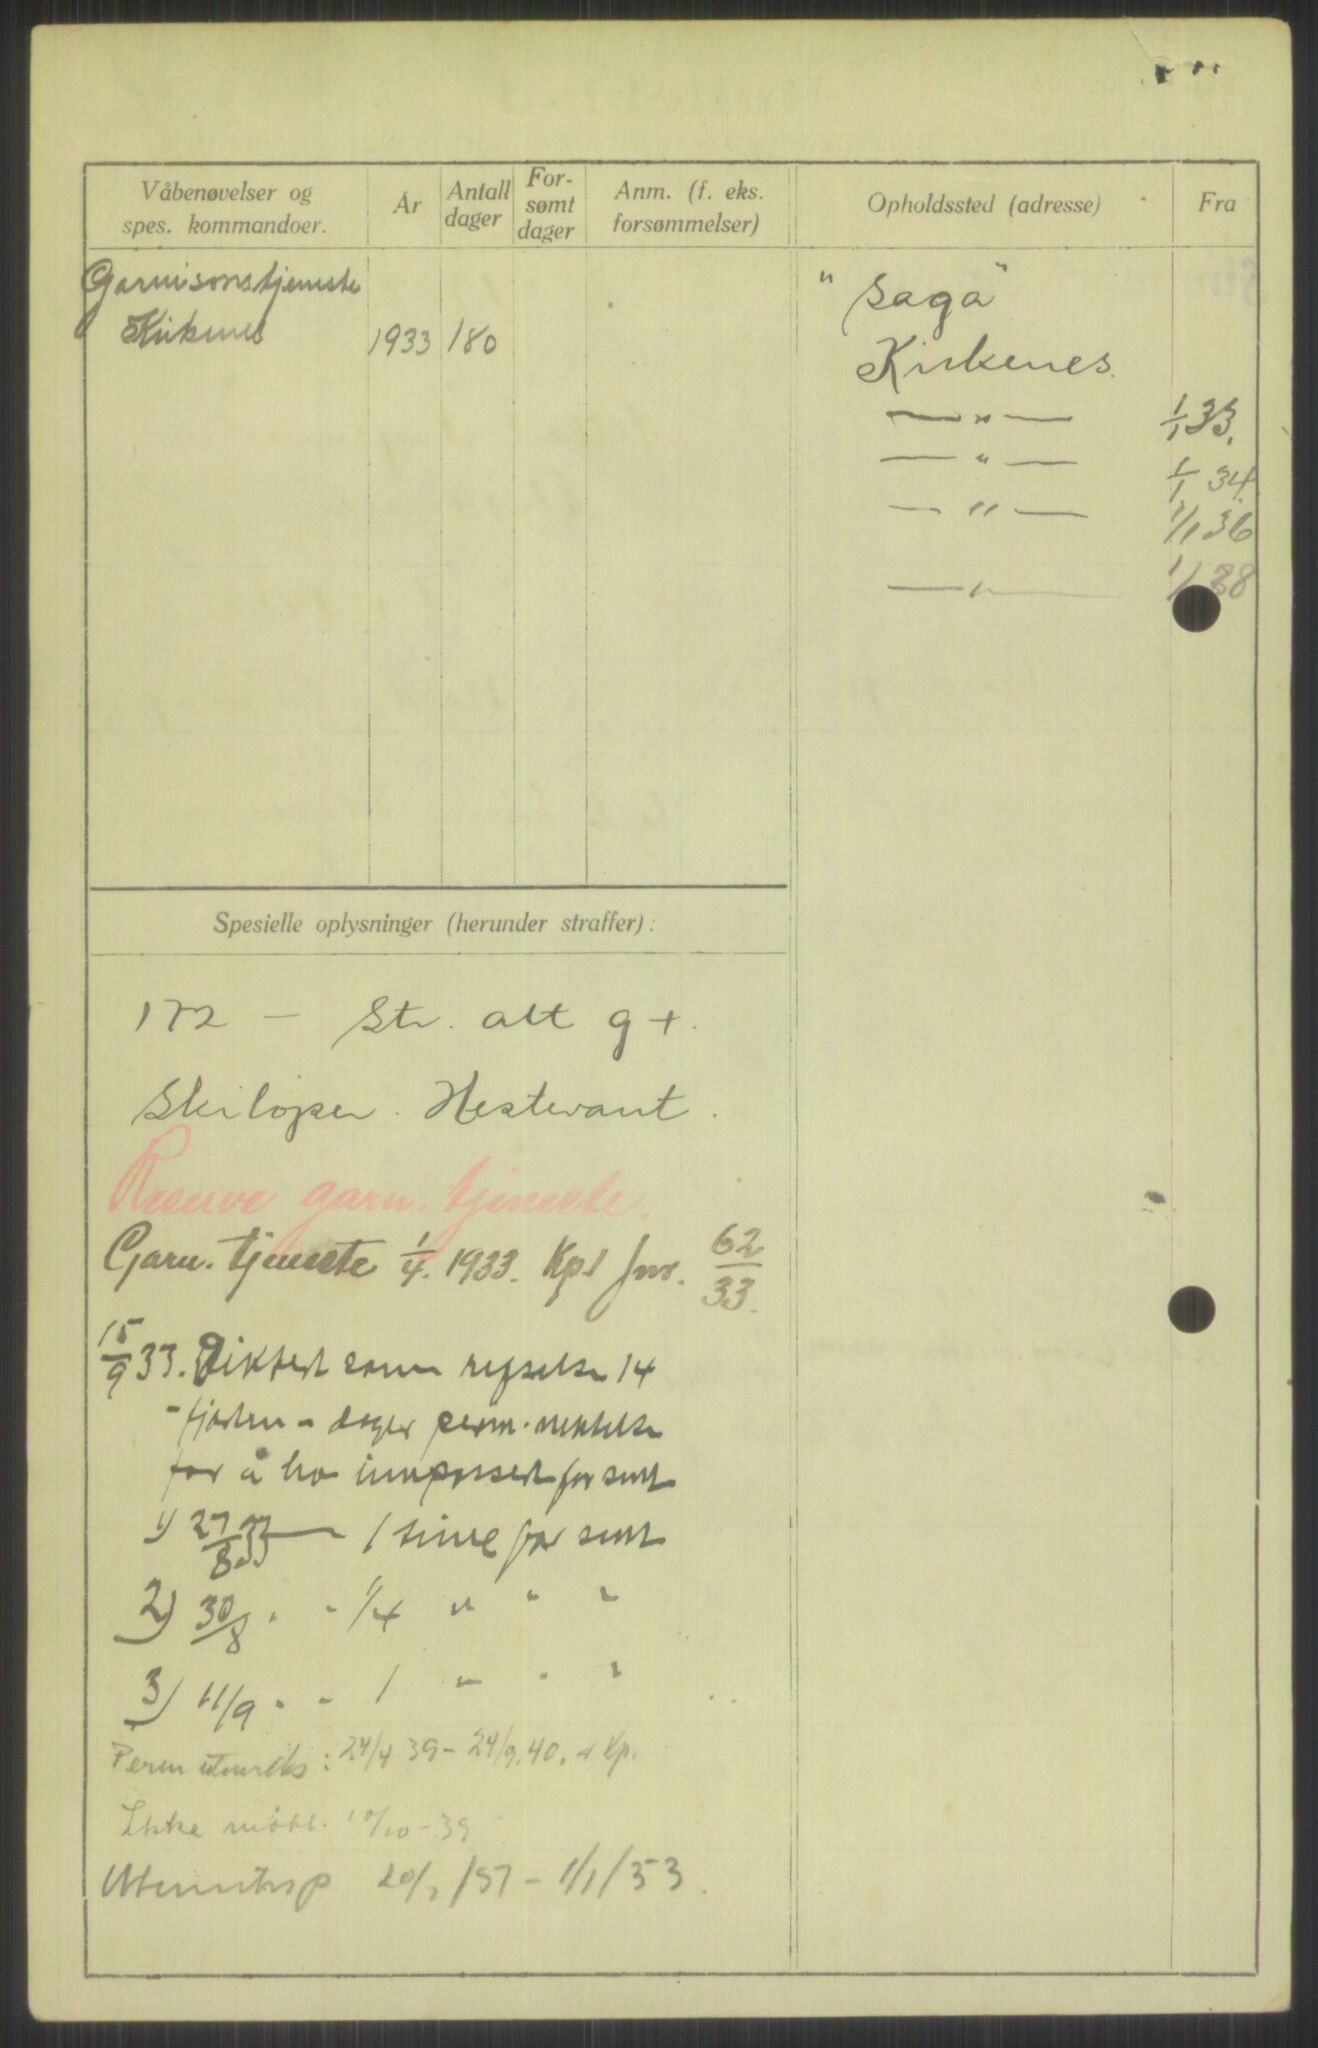 Våbenøvelser og spes. kommandoer.
År
Antall dager
For-sømt dager
Anm. (f. eks. forsømmelser)
Opholdssted (adresse)
Fra
Garnisonstjeneste
Kirkenes 1933 180
"Saga"
Kirkenes.
— " — 1/1 33.
— " — 1/1 34
— " — 1/1 36
— " — 1/1 38
Spesielle oplysninger (herunder straffer):
172 — Str. alt g +.
Skiløper. Hestevant.
Reserve garn. tjeneste.
Garn. tjeneste 1/4. 1933. Kpl 62/33.
15/9 33. Diktert som refselse 14
- fjorten - dager perm. nektelse
for å ha innpassert for sent
1) 27/8 33 — 1 time for sent
2) 30/8 " - 1/4 " " "
3) 11/9 " - 1 " " "
Perm utenriks: 24/4 39 - 24/9. 40. Kp.
Ikke møtt. 10/10 - 39